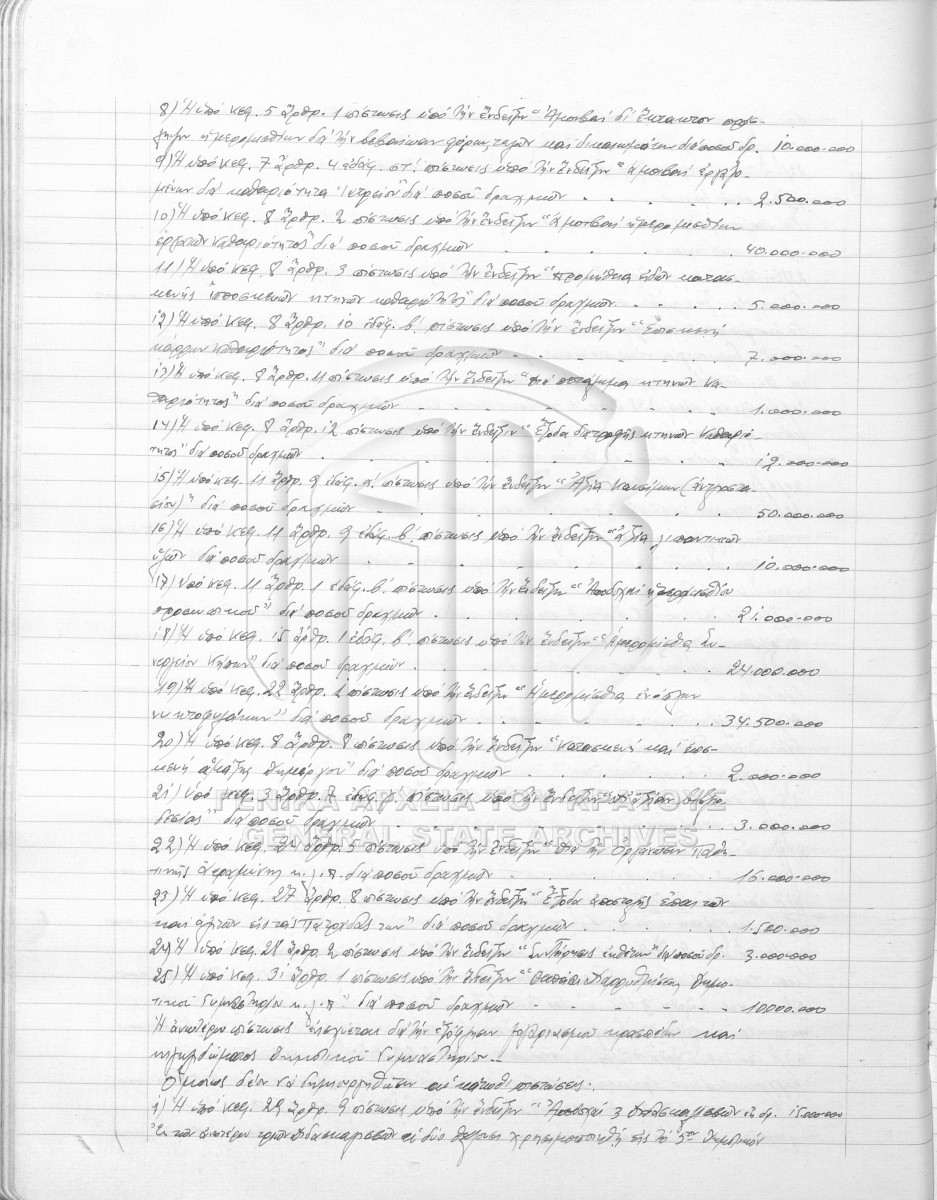 8) Ἡ ὑπό κεφ. 5 ἄρθρ. 1 πίστωσις ὑπό τήν ἔνδειξιν "Ἀμοιβαί δι' ἔκτακτον πρόσ-
ληψιν ἡμερομισθίων διά τήν βεβαίωσιν φόρων, τελῶν καί δικαιωμάτων διά ποσοῦ δρ. 10.000.000
9) Ἡ ὑπό κεφ. 7 ἄρθρ. 4 ἐδάφ. στ'. πίστωσις ὑπό τήν ἔνδειξιν "ἀμοιβαί ἐργαζο-
μένων διά καθαριότητα Ἰατρείου" διά ποσοῦ δραχμῶν 2.500.000
10) Ἡ ὑπό κεφ. 8 ἄρθρ. 2 πίστωσις ὑπό τήν ἔνδειξιν "ἀμοιβαί ἡμερομισθίων
ἐργατῶν καθαριότητος" διά ποσοῦ δραχμῶν 40.000.000
11) Ἡ ὑπό κεφ. 8 ἄρθρ. 3 πίστωσις ὑπό τήν ἔνδειξιν "προμήθεια εἰδῶν κατασ-
κευῆς ἱπποσκευῶν κτηνῶν καθαριότητος" διά ποσοῦ δραχμῶν 5.000.000
12) Ἡ ὑπό κεφ. 8 ἄρθρ. 10 ἐδάφ. β'. πίστωσις ὑπό τήν ἔνδειξιν "Ἐπισκευή
κάρρων καθαριότητος" διά ποσοῦ δραχμῶν 7.000.000
13) Ἡ ὑπό κεφ. 8 ἄρθρ. 11 πίστωσις ὑπό τήν ἔνδειξιν "διά πετάλωμα κτηνῶν κα-
θαριότητος" διά ποσοῦ δραχμῶν 1.000.000
14) Ἡ ὑπό κεφ. 8 ἄρθρ. 12 πίστωσις ὑπό τήν ἔνδειξιν "Ἔξοδα διατροφῆς κτηνῶν καθαριό-
τητος" διά ποσοῦ δραχμῶν 12.000.000
15) Ἡ ὑπό κεφ. 11 ἄρθρ. 9 ἐδάφ. α'. πίστωσις ὑπό τήν ἔνδειξιν "Ἀξία καυσίμων (ἀντλιοστα-
σίου)" διά ποσοῦ δραχμῶν 50.000.000
16) Ἡ ὑπό κεφ. 11 ἄρθρ. 9 ἐδάφ. β'. πίστωσις ὑπό τήν ἔνδειξιν "ἀξία λιπαντικῶν
ὑλῶν διά ποσοῦ δραχμῶν 10.000.000
17) Ὑπό κεφ. 11 ἄρθρ. 1 ἐδάφ. β'. πίστωσις ὑπό τήν ἔνδειξιν "Ἀποδοχαί ἡμερομισθίου
προσωπικοῦ" διά ποσοῦ δραχμῶν 21.000.000
18) Ἡ ὑπό κεφ. 15 ἄρθρ. 1 ἐδάφ. β'. πίστωσις ὑπό τήν ἔνδειξιν "Ἡμερομίσθια Συ-
νεργείου Κήπων" διά ποσοῦ δραχμῶν 24.000.000
19) Ἡ ὑπό κεφ. 22 ἄρθρ. 2 πίστωσις ὑπό τήν ἔνδειξιν "Ἡμερομίσθια ἐνόπλων
νυκτοφυλάκων" διά ποσοῦ δραχμῶν 34.500.000
20) Ἡ ὑπό κεφ. 8 ἄρθρ. 8 πίστωσις ὑπό τήν ἔνδειξιν "Κατασκευή καί ἐπισ-
κευή ἁμάξης Δημάρχου" διά ποσοῦ δραχμῶν 2.000.000
21) Ὑπό κεφ. 3 ἄρθρ. 7 πίστωσις ὑπό τήν ἔνδειξιν ἀξίαν βιβλιο-
δεσίας" διά ποσοῦ δραχμῶν 3.000.000
22) Ἡ ὑπό κεφ. 24 ἄρθρ. 5 πίστωσις ὑπό τήν ἔνδειξιν "διά τήν ὀργάνωσιν Παθη-
τικῆς Ἀεραμύνης κ.λ.π. διά ποσοῦ δραχμῶν 16.000.000
23) Ἡ ὑπό κεφ. 27 ἄρθρ. 8 πίστωσις ὑπό τήν ἔνδειξιν "Ἔξοδα ἀποστολῆς ἐπαιτῶν
καί ἀλητῶν εἰς τάς Πατρίδας των" διά ποσοῦ δραχμῶν 1.500.000
24) Ἡ ὑπό κεφ. 28 ἄρθρ. 2 πίστωσις ὑπό τήν ἔνδειξιν "Συντήρησις ἐκθέτων" διά ποσοῦ δρ. 3.000.000
25) Ἡ ὑπό κεφ. 31 ἄρθρ. 1 πίστωσις ὑπό τήν ἔνδειξιν Δημο-
τικοῦ Γυμναστηρίου κ.λ.π" διά ποσοῦ δραχμῶν 10000.000
Ἡ ἀνωτέρω πίστωσις ἐνισχύεται διά τήν ἐξόφλησιν λογαριασμοῦ κρασπέδων καί
κιγκλιδώματος Δημοτικοῦ Γυμναστηρίου.
Ὁμοίως δέον νά δημιουργηθῶσιν αἱ κάτωθι πιστώσεις.
1) Ἡ ὑπό κεφ. 29 ἄρθρ. 9 πίστωσις ὑπό τήν ἔνδειξιν "Ἀποδοχαί 3 διδασκαλισσῶν ἐκ δρ. 15.000.000
Ἐκ τῶν ἀνωτέρω τριῶν διδασκαλισσῶν αἱ δύο θέλουσι χρησιμοποιηθῆ εἰς τό 5ον Δημοτικόν
ΓΕΝΙΚΑ ΑΡΧΕΙΑ ΤΟΥ ΚΡΑΤΟΥΣ
GENERAL STATE ARCHIVES